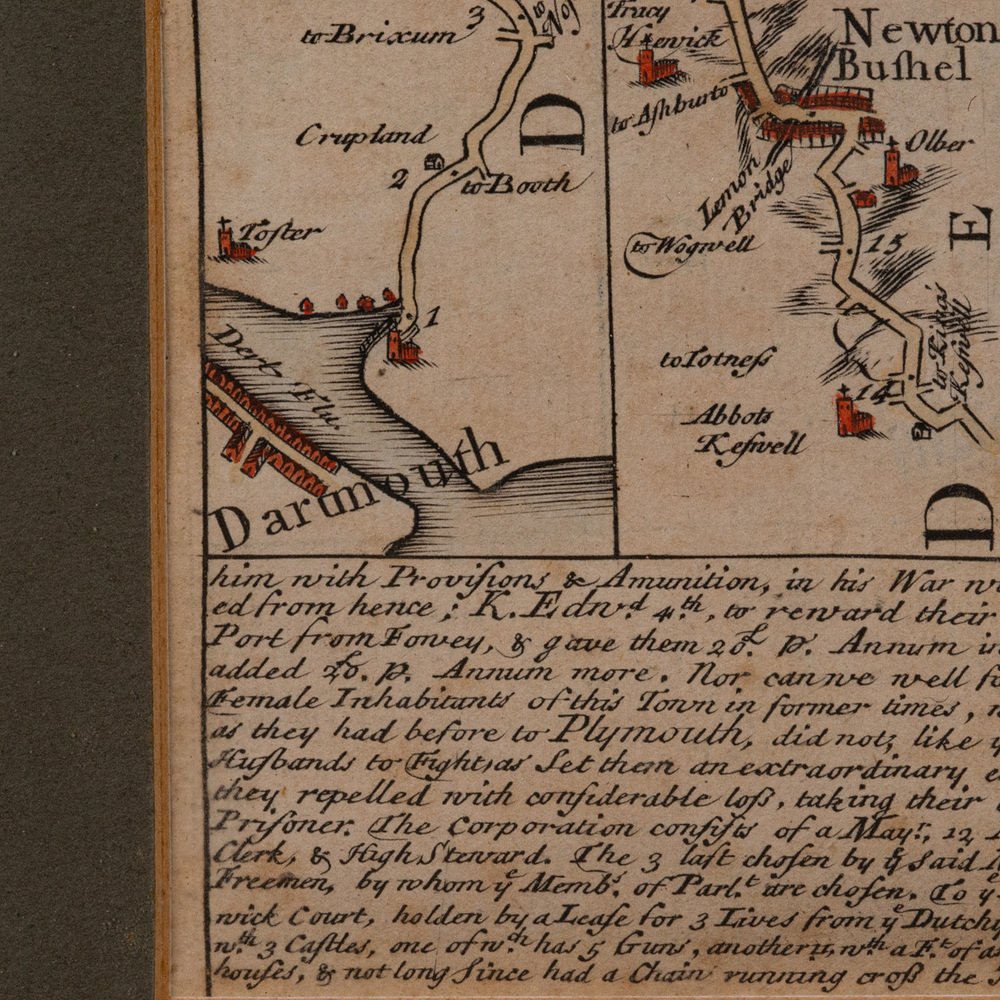 to Brixum
3
to
Crupland
2
to Booth
D
Tofter
1
Dert Flu.
Dartmouth
Tracy
Hewick
Newton
Buſhel
to Aſhburto
Olber
Lemon
Bridge
to Wogwell
15
E
to Totneſs
to
Keſwell
14
Abbots
Keſwell
D
him with Proviſions & Amunition, in his War
ed from hence; K. Edwᵈ. 4ᵗʰ, to reward their
Port from Fowey, & gave them 20£. p. Annum
added 20£. p. Annum more. Nor can we well
Female Inhabitants of this Town in former times,
as they had before to Plymouth, did not, like
Huſbands to Fight, as Set them an extraordinary
they repelled with conſiderable loſs, taking their
Priſoner. The Corporation conſiſts of a Mayʳ, 12
Clerk, & High Steward. The 3 laſt choſen by yᵉ Said
Freemen, by whom yᵉ Membˢ. of Parlᵗ are choſen. To yᵉ
wick Court, holden by a Leaſe for 3 Lives from yᵉ Dutchy
wᵗʰ 3 Caſtles, one of wᶜʰ has 5 Guns, another 11, wᵗʰ a Fᵗ. of
houſes, & not long Since had a Chain running croſs the